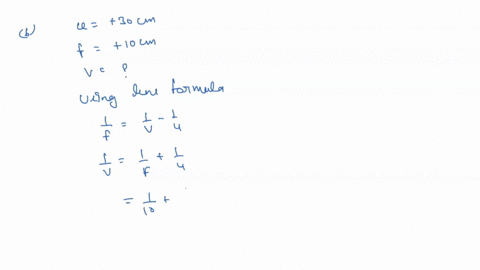 (b) u = +30 cm
f = +10 cm
v = ?
Using lens formula
1/f = 1/v - 1/u
1/v = 1/f + 1/u
= 1/10 +